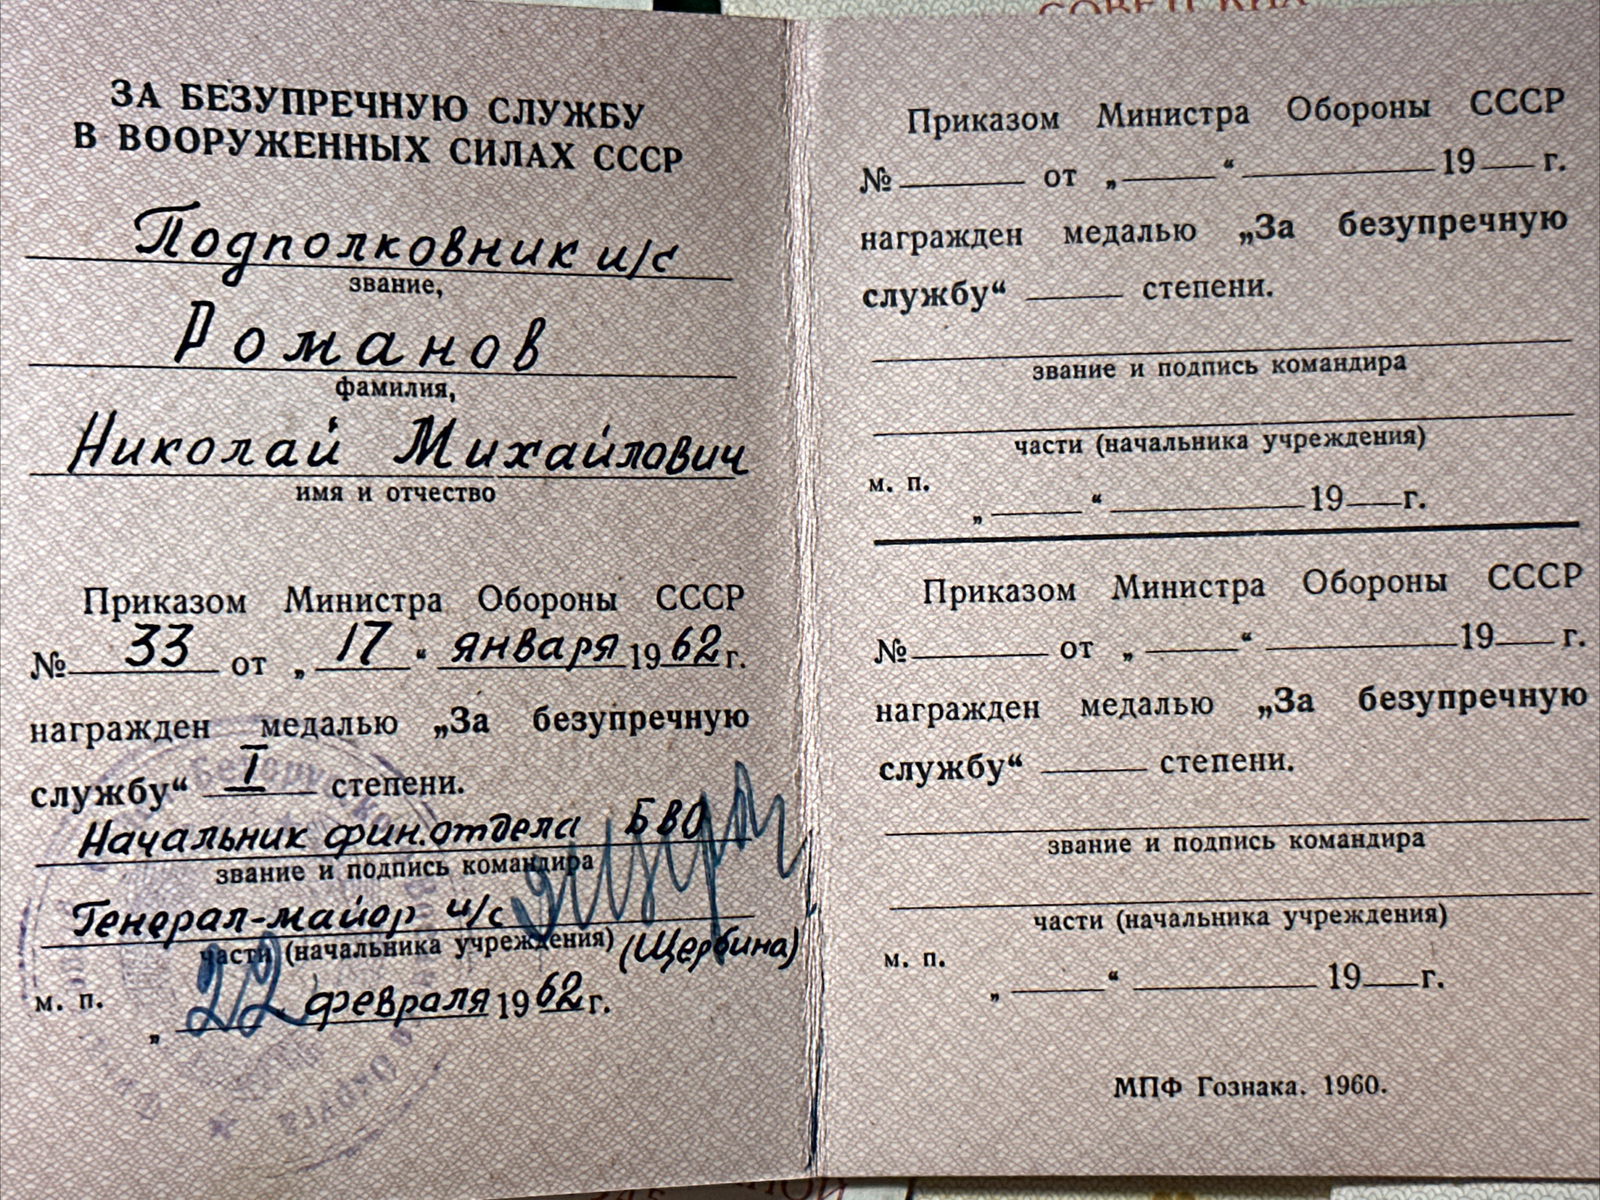 СОВЕТСКИХ
ЗА БЕЗУПРЕЧНУЮ СЛУЖБУ
В ВООРУЖЕННЫХ СИЛАХ СССР
Подполковник и/с
звание,
Романов
фамилия,
Николай Михайлович
имя и отчество
Приказом Министра Обороны СССР
№ 33 от „ 17 “ января 1962 г.
награжден медалью „За безупречную
службу“ I степени.
Начальник фин.отдела БВО
звание и подпись командира
Генерал-майор и/с
части (начальника учреждения) (Щербина)
м. п.
„ 22 февраля 1962 г.
Приказом Министра Обороны СССР
№ от „ “ 19 г.
награжден медалью „За безупречную
службу“ степени.
звание и подпись командира
части (начальника учреждения)
м. п.
„ “ 19 г.
Приказом Министра Обороны СССР
№ от „ “ 19 г.
награжден медалью „За безупречную
службу“ степени.
звание и подпись командира
части (начальника учреждения)
м. п.
„ “ 19 г.
МПФ Гознака. 1960.